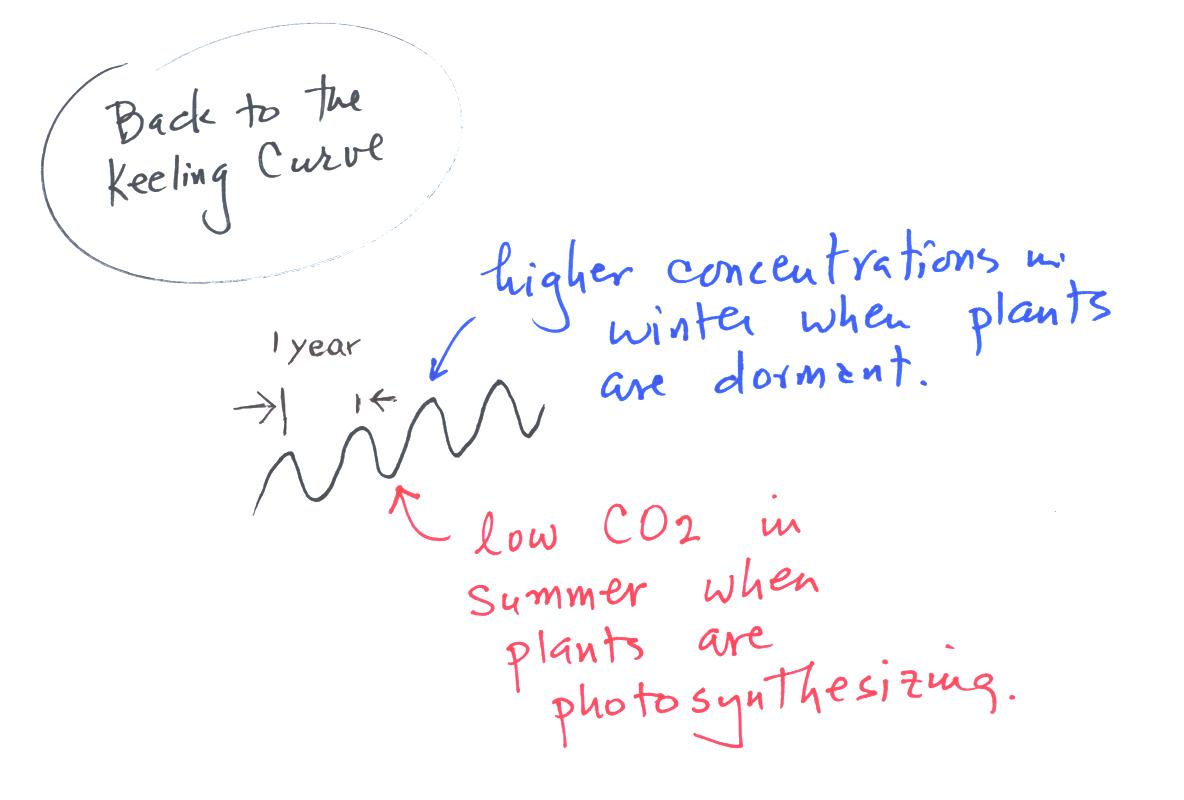 Back to the
Keeling Curve
higher concentrations in
winter when plants
are dormant.
1 year
low CO2 in
summer when
plants are
photosynthesizing.